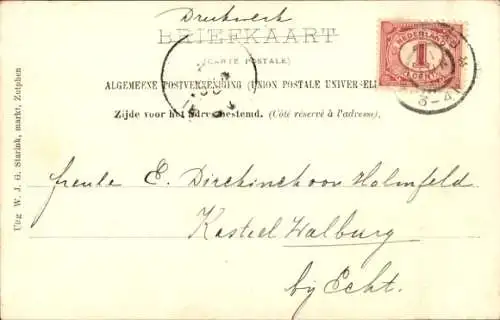 Drukwerk
BRIEFKAART
(CARTE POSTALE)
NEDERLAND
1
CENT
3-4N
ALGEMEENE POSTVEREENIGING (UNION POSTALE UNIVERSELLE)
Zijde voor het adres bestemd. (Côté réservé à l'adresse).
freule E. Dirckinck von Holmfeld
Kasteel Walburg
bij Echt.
Uitg W. J. G. Starink, markt, Zutphen